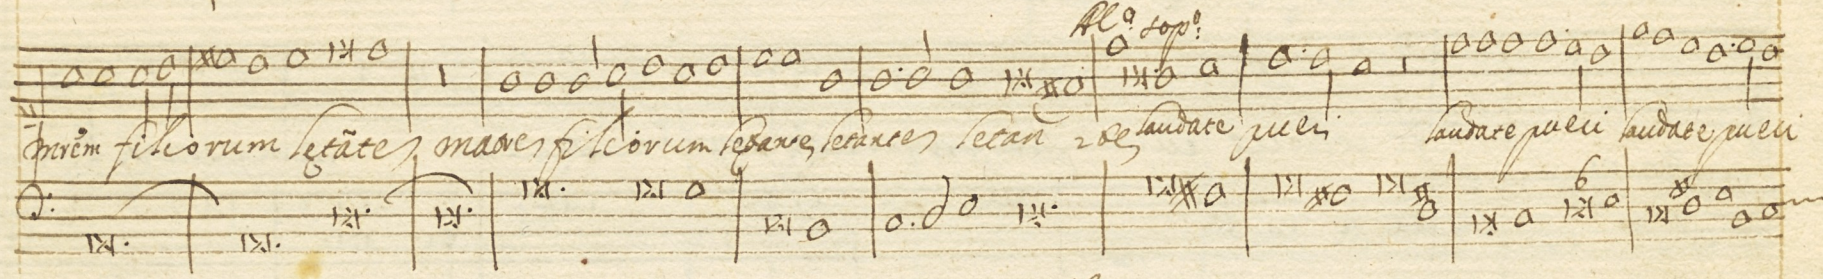 Al.º sop.º
mrẽm filiorum letãtes matres filiorum letantes letantes letan tes laudate pueri laudate pueri laudate pueri
6